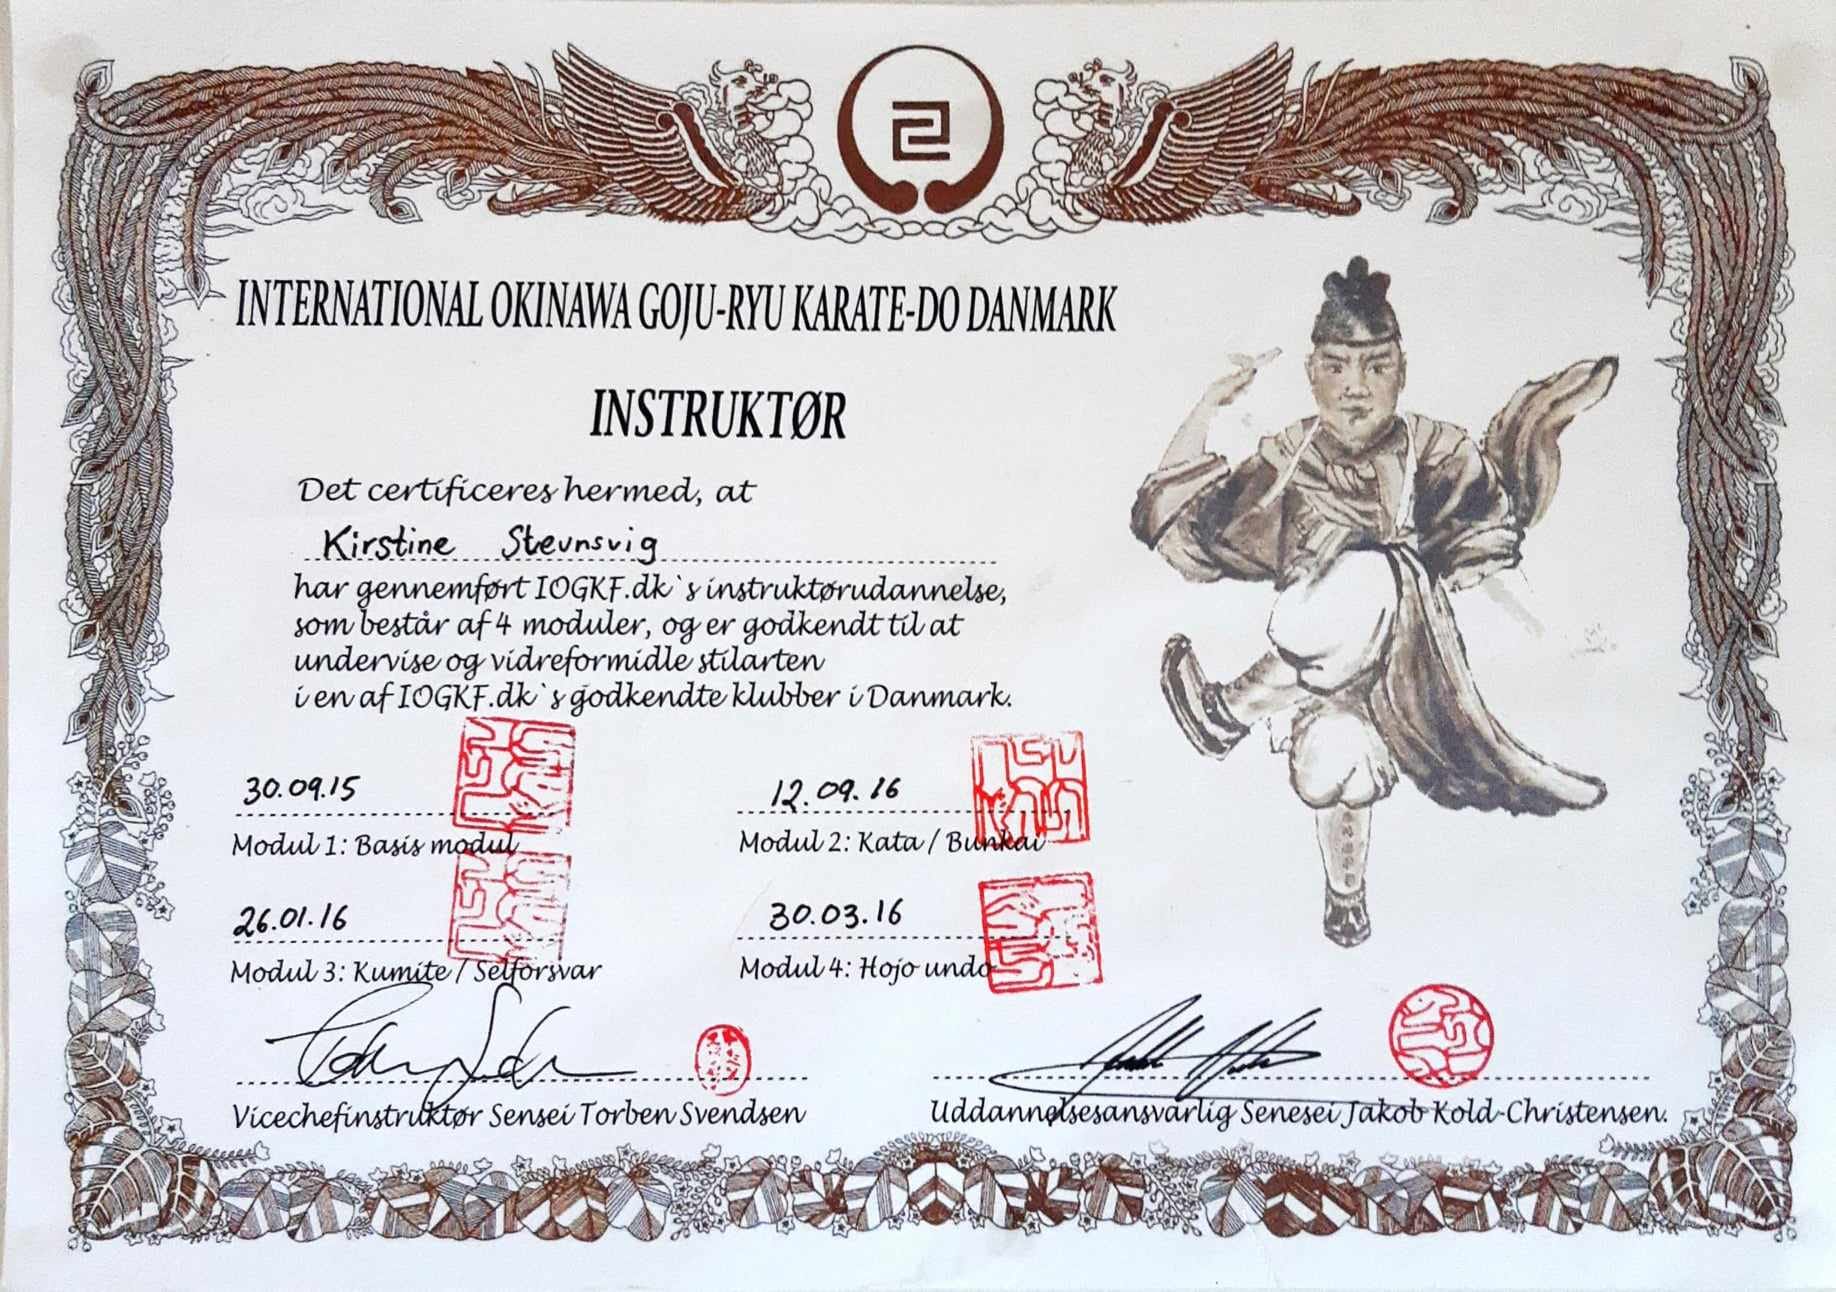 INTERNATIONAL OKINAWA GOJU-RYU KARATE-DO DANMARK
INSTRUKTØR
Det certificeres hermed, at
Kirstine Stevnsvig
har gennemført IOGKF.dk`s instruktørudannelse,
som består af 4 moduler, og er godkendt til at
undervise og vidreformidle stilarten
i en af IOGKF.dk`s godkendte klubber i Danmark.
30.09.15
12.09.16
Modul 1: Basis modul
Modul 2: Kata / Bunkai
26.01.16
30.03.16
Modul 3: Kumite / Selforsvar
Modul 4: Hojo undo
Vicechefinstruktør Sensei Torben Svendsen
Uddannelsesansvarlig Senesei Jakob Kold-Christensen.